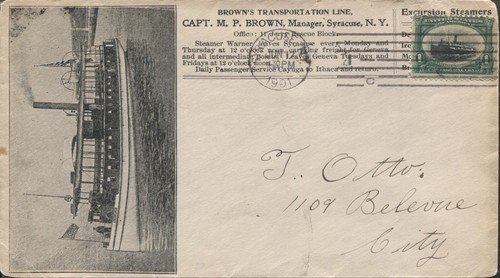 BROWN'S TRANSPORTATION LINE,
CAPT. M. P. BROWN, Manager, Syracuse, N. Y.
Office: Rescue Block
Steamer Warner leaves Syracuse every Monday and
Thursday at 12 o'clock noon, carrying freight for Geneva
and all intermediate points. Leave Geneva Tuesdays and
Fridays at 12 o'clock noon.
Daily Passenger Service Cayuga to Ithaca and return.
Excursion Steamers
PM
1901
C
1
T. Otto.
1109 Bellevue
City